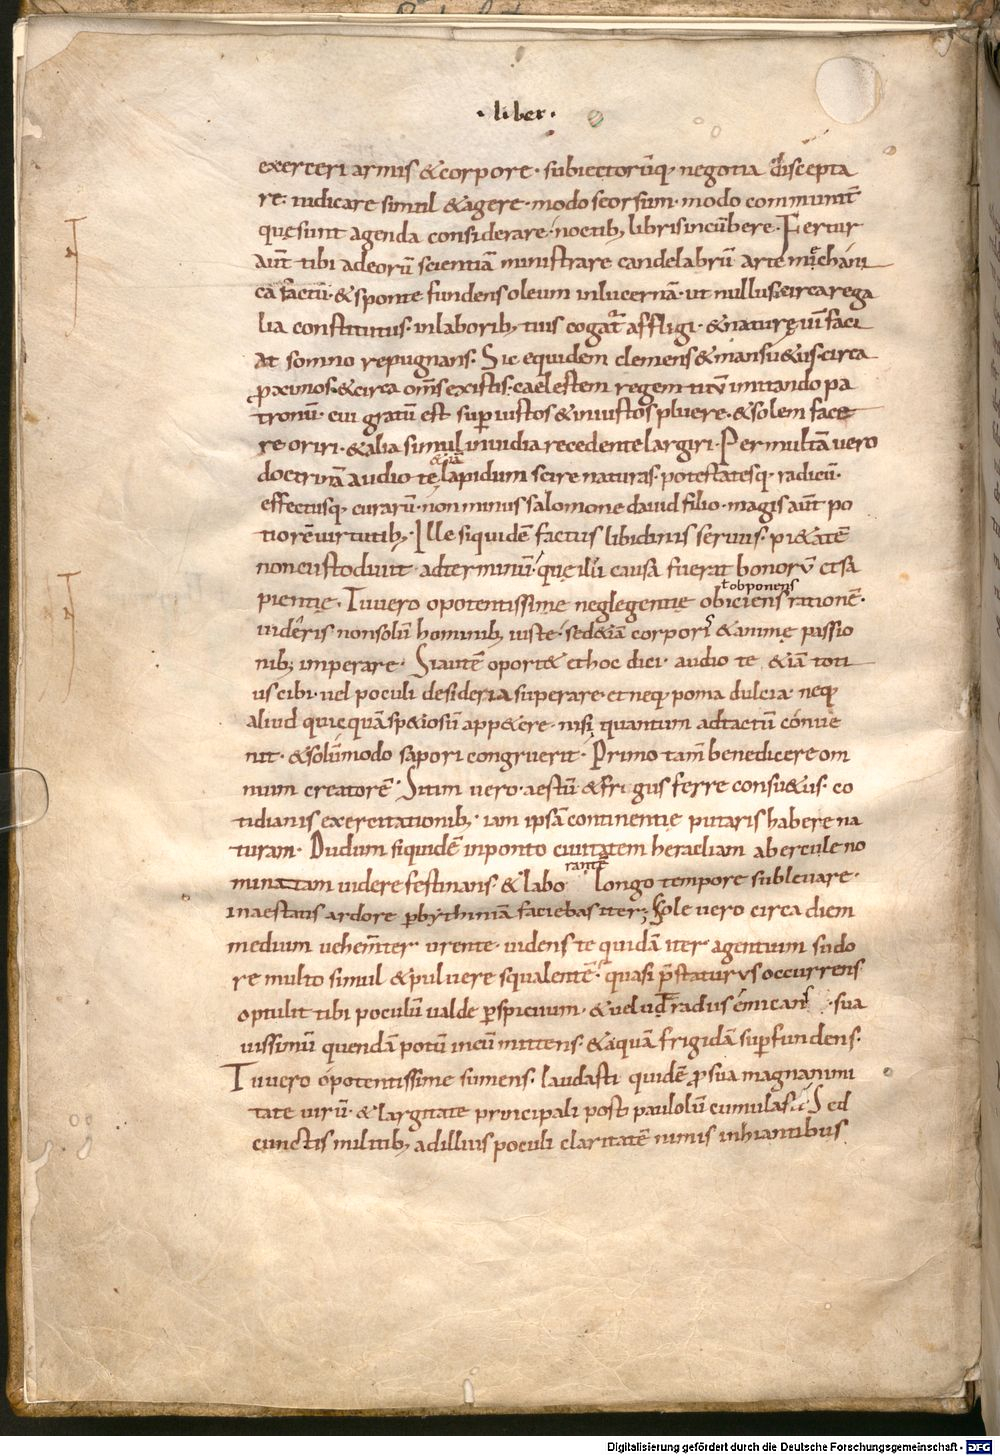 · liber ·
exerceri armis & corpore · subiectorūq; negotia discepta
re · iudicare simul & agere · modo seorsum · modo communit̄
que sunt agenda considerare · noctib; libris incūbere · Fertur
aūt tibi adeorū scientiā ministrare candelabrū arte mechani
ca factū · & sponte fundens oleum in lucernā · ut nullus circa rega
lia constitutus · in laborib; tuis cogat̄ affligi · & naturę uim faci
at somno repugnans · Sic equidem clemens & mansu&us · circa
ꝓximos · & circa om̄s existis · caelestem regem tuū imitando pa
tronum · cui gratū est sup̄ iustos & iniustos pluere · & solem face
re oriri · & alia simul inuidia recedente largiri · Per multā uero
doctrinā audio te &iā lapidum scire naturas · potestatesq; radicū ·
effectusq; curarū · non minus salomone dauid filio · magis aūt po
tiorē uirtutib; · Ille siquidē factus libidinis seruus · pi&atē
non custodiuit · ad terminum · que illi causa fuerat bonorū & sa
pientię · Tu uero o potentissime neglegentię obiciens ł obponens rationē ·
uideris non solū hominib; iuste · sed &iā corporis & animę passio
nib; imperare · Si autē oport& & hoc dici · audio te &iā toti
us cibi · uel poculi desideria superare · et neq; poma dulcia · neq;
aliud quicquā sp&iosum app&ere · nisi quantum ad tactū conue
nit · & solūmodo sapori congruerit · Primo tam̄ benedicere om
nium creatorē · Sitim uero · aestū & frigus ferre consu&us · co
tidianis exercitationib; · iam ipsā continentię putaris habere na
turam · Dudum siquidē in ponto ciuitatem heracliam ab ercule no
minatam uidere festinans · & laborantē longo tempore subleuare ·
in aestatis ardore p̄ bythiniā faciebas iter · Sole uero circa diem
medium uehem̄ter urente · uidens te quidā iter agentium sudo
re multo simul & puluere squalentē · quasi p̄staturus occurrens
optulit tibi poculū ualde p̄spicuum · & uelud radius emicans · sua
uissimū quendā potū in cū mittens · & aquā frigidā sup̄fundens ·
Tu uero o potentissime sumens · laudasti quidē ꝓ sua magnanimi
tate uirū · & largitate principali post paulolū cumulasti · Sed
cunctis militib; ad illius poculi claritatē nimis inhiantibus
Digitalisierung gefördert durch die Deutsche Forschungsgemeinschaft - DFG